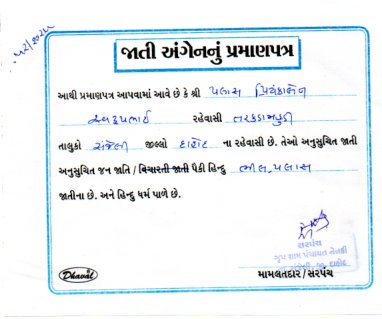 જાતી અંગેનનું પ્રમાણપત્ર
આથી પ્રમાણપત્ર આપવામાં આવે છે કે શ્રી પલાસ પ્રિયંકાબેન
રહેવાસી તરકડામહુડી
તાલુકો સંજેલી જીલ્લો દાહોદ ના રહેવાસી છે. તેઓ અનુસુચિત જાતી
અનુસુચિત જન જાતિ / વિચારતી જાતી પૈકી હિન્દુ ભીલ પલાસ
જાતીના છે. અને હિન્દુ ધર્મ પાળે છે.
સરપંચ
ગૃપ ગ્રામ પંચાયત
Dhaval
મામલતદાર / સરપંચ